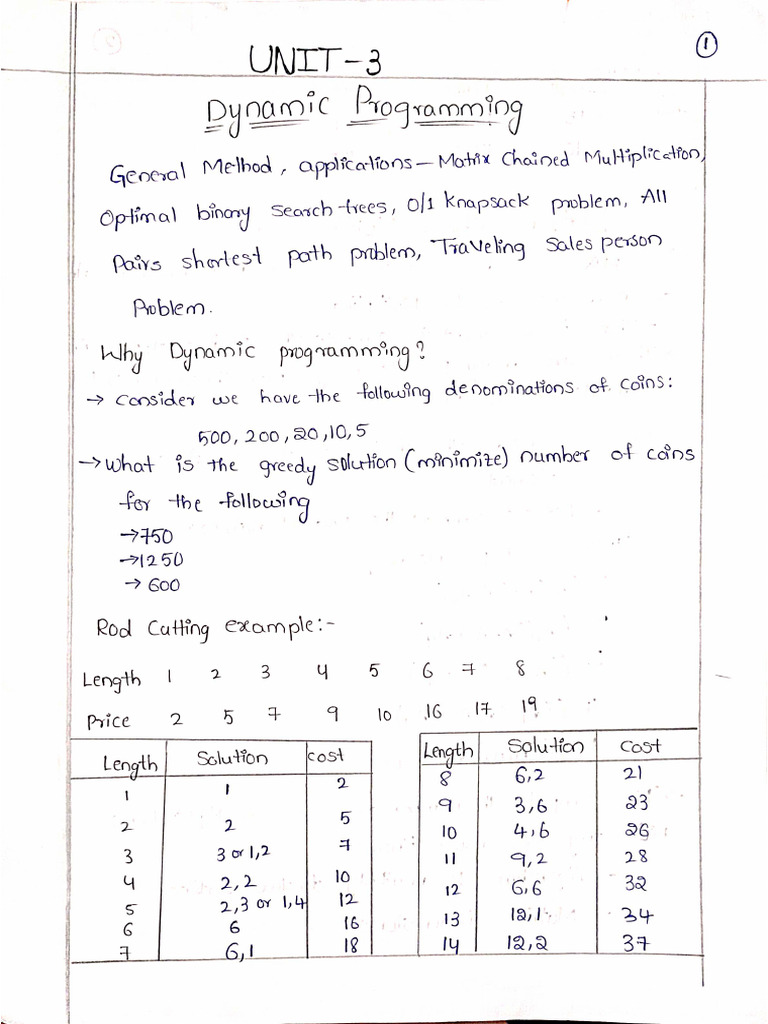 1
UNIT-3
Dynamic Programming
General Method, applications – Matrix Chained Multiplication,
Optimal binary search trees, 0/1 Knapsack problem, All
Pairs shortest path problem, Traveling sales person
Problem.
Why Dynamic programming?
→ Consider we have the following denominations of coins:
500, 200, 20, 10, 5
→ What is the greedy solution (minimize) number of coins
for the following
→ 750
→ 1250
→ 600
Rod Cutting example:-
Length 1 2 3 4 5 6 7 8
Price 2 5 7 9 10 16 17 19
Length Solution cost
1 1 2
2 2 5
3 3 or 1,2 7
4 2,2 10
5 2,3 or 1,4 12
6 6 16
7 6,1 18
Length Solution Cost
8 6,2 21
9 3,6 23
10 4,6 26
11 9,2 28
12 6,6 32
13 12,1 34
14 12,2 37